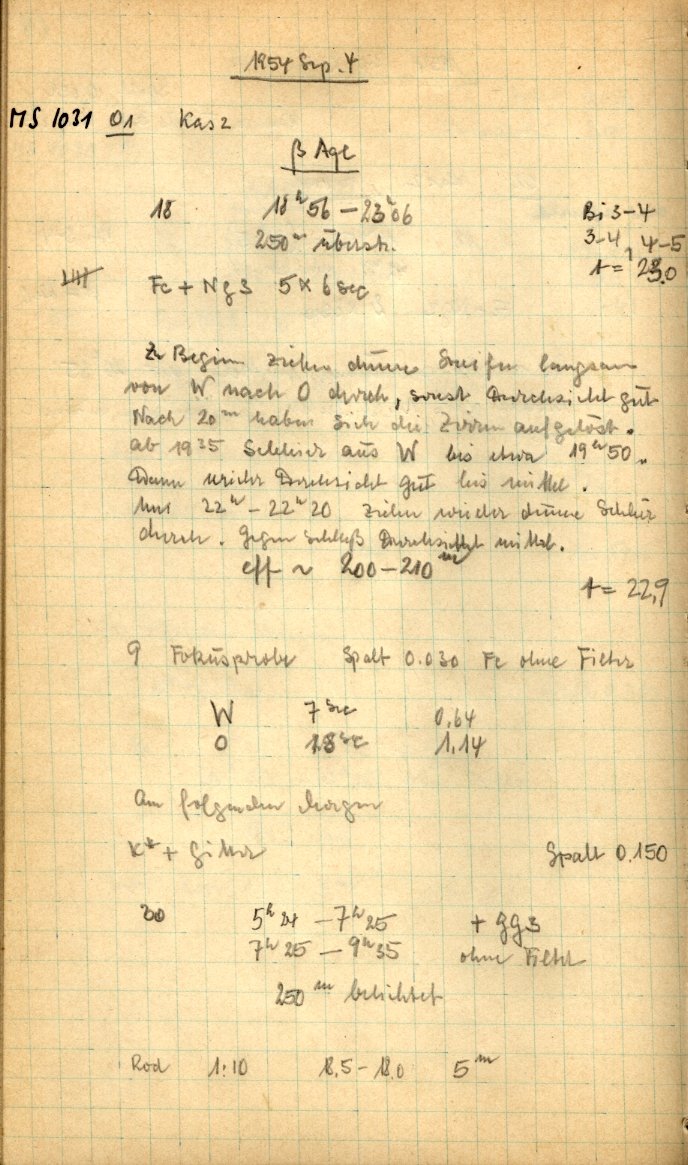 1954 Sep. 4
MS 1031 01 Kas 2
β Aql
18 18ʰ56 – 23ʰ06 Bi 3-4
250ᵐ überstr. 3-4, 4-5
t = 23.0
Fe + Ng3 5 × 6 sec
Zu Beginn ziehen dünne Streifen langsam
von W nach O durch, sonst Durchsicht gut
Nach 20ᵐ haben sich die Zirren aufgelöst.
ab 19 35 Schlier aus W bis etwa 19ʰ50.
Dann wieder Durchsicht gut bis mittel.
22ʰ – 22ʰ20 ziehen wieder dünne Schlier
durch. Gegen Schluß Durchsicht mittel.
eff ~ 200 – 210ᵐ
t = 22,9
9 Fokusprobe Spalt 0.030 Fe ohne Filter
W 7 sec 0,64
O 18 sec 1,14
Am folgenden Morgen
K* + Gitter Spalt 0.150
30 5ʰ 21 – 7ʰ 25 + gg3
7ʰ 25 – 9ʰ 35 ohne Filter
250ᵐ belichtet
Rod 1:10 18,5 – 18.0 5ᵐ